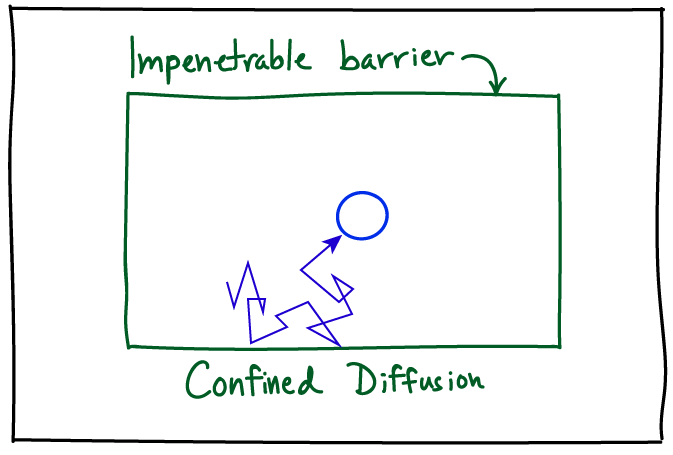 Impenetrable barrier
Confined Diffusion